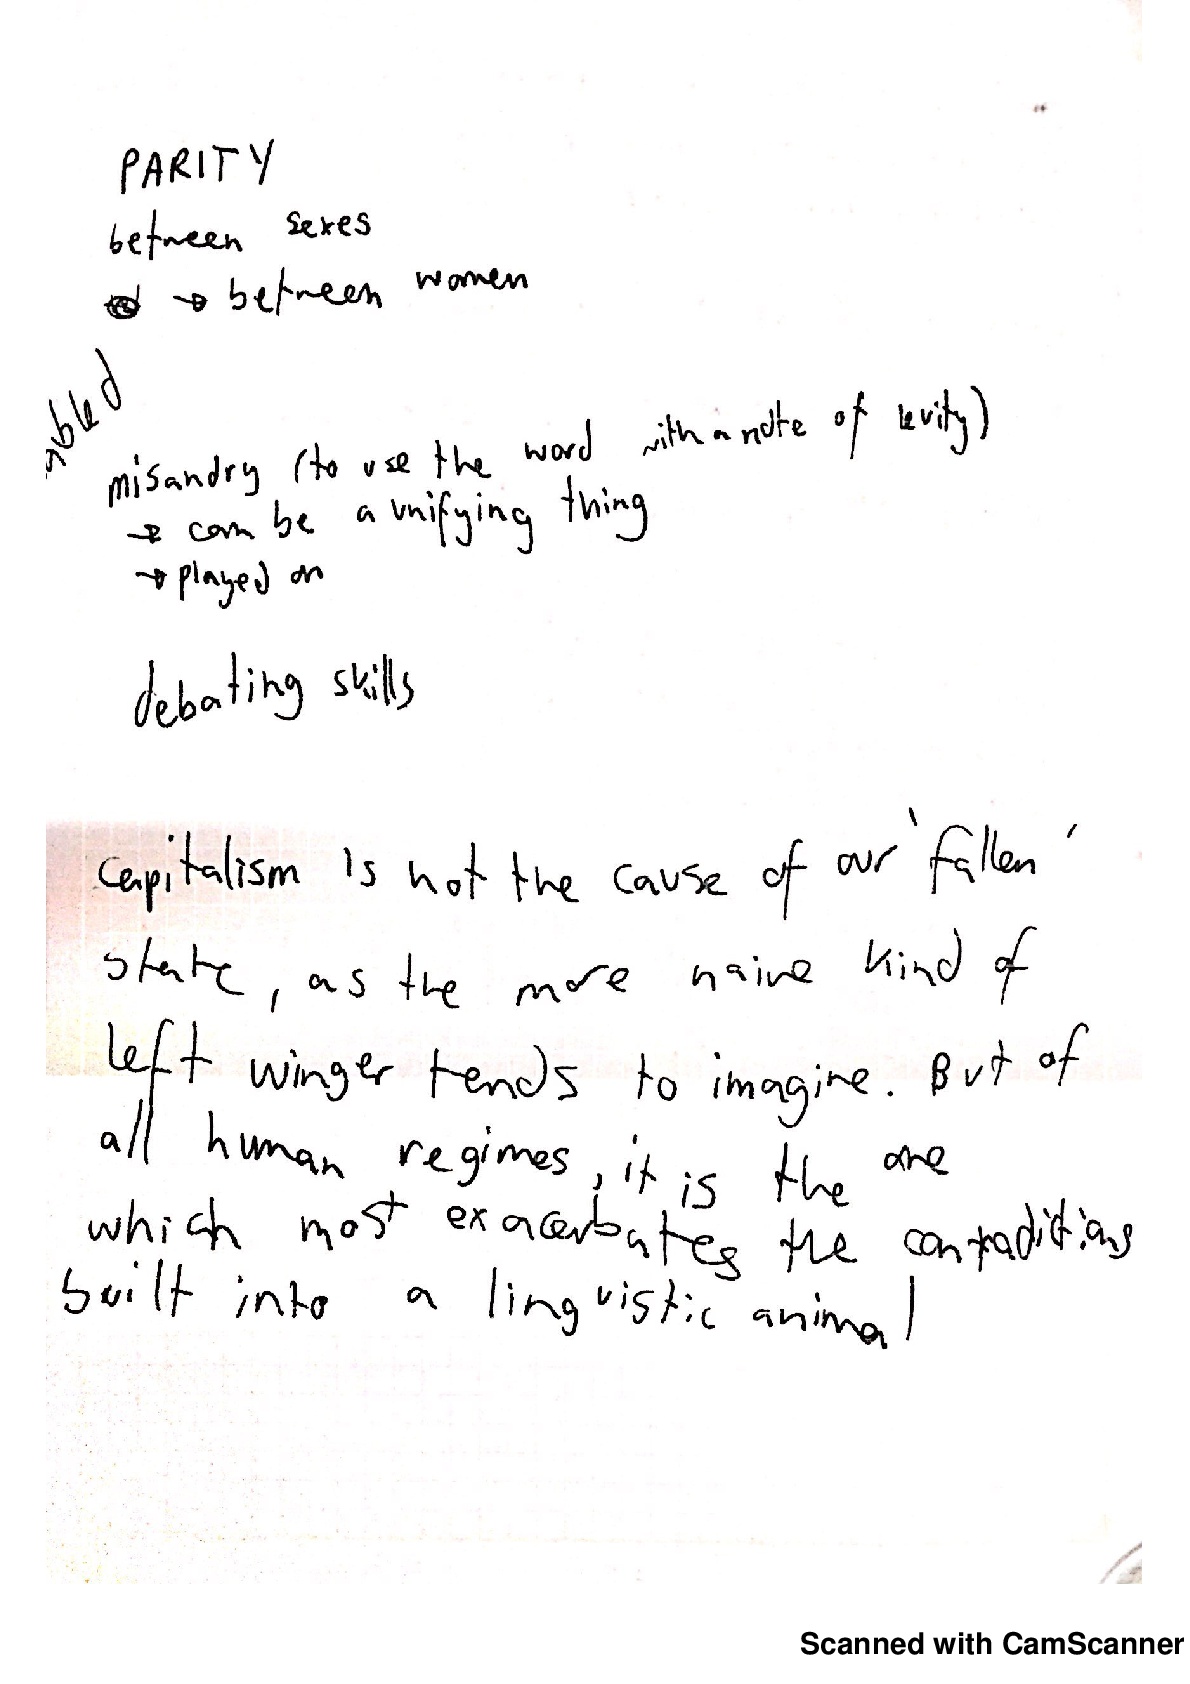 PARITY
between sexes
→ between women
misandry (to use the word with a note of levity)
→ can be a unifying thing
→ played on
debating skills
Capitalism is not the cause of our 'fallen'
state, as the more naive kind of
left winger tends to imagine. But of
all human regimes, it is the one
which most exacerbates the contradictions
built into a linguistic animal
Scanned with CamScanner